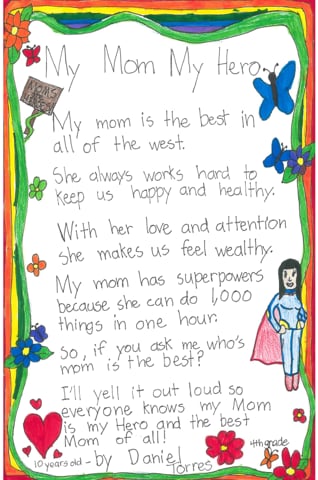 My Mom My Hero
MOM'S
ROCK
My mom is the best in
all of the west.
She always works hard to
keep us happy and healthy.
With her love and attention
she makes us feel wealthy.
My mom has superpowers
because she can do 1,000
things in one hour.
So, if you ask me who's
mom is the best?
I'll yell it out loud so
everyone knows my Mom
is my Hero and the best
Mom of all!
4th grade
10 years old - by Daniel
Torres